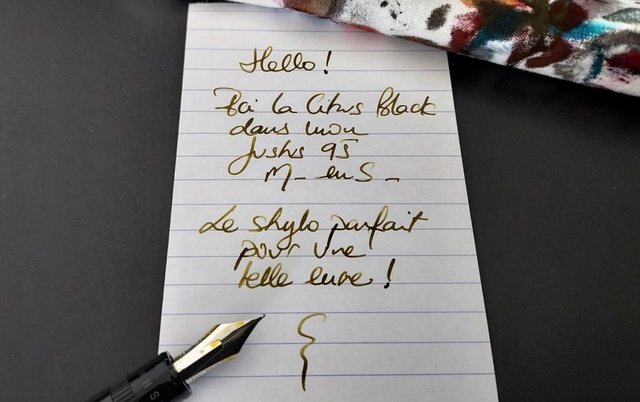 Hello!
J'ai la Citrus Black
dans mon
Justus 95
M_ en S_
Le stylo parfait
pour une
telle encre!